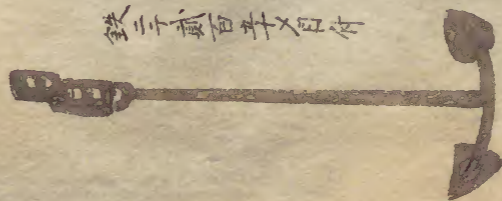 鉄二千貳百五十メ目付